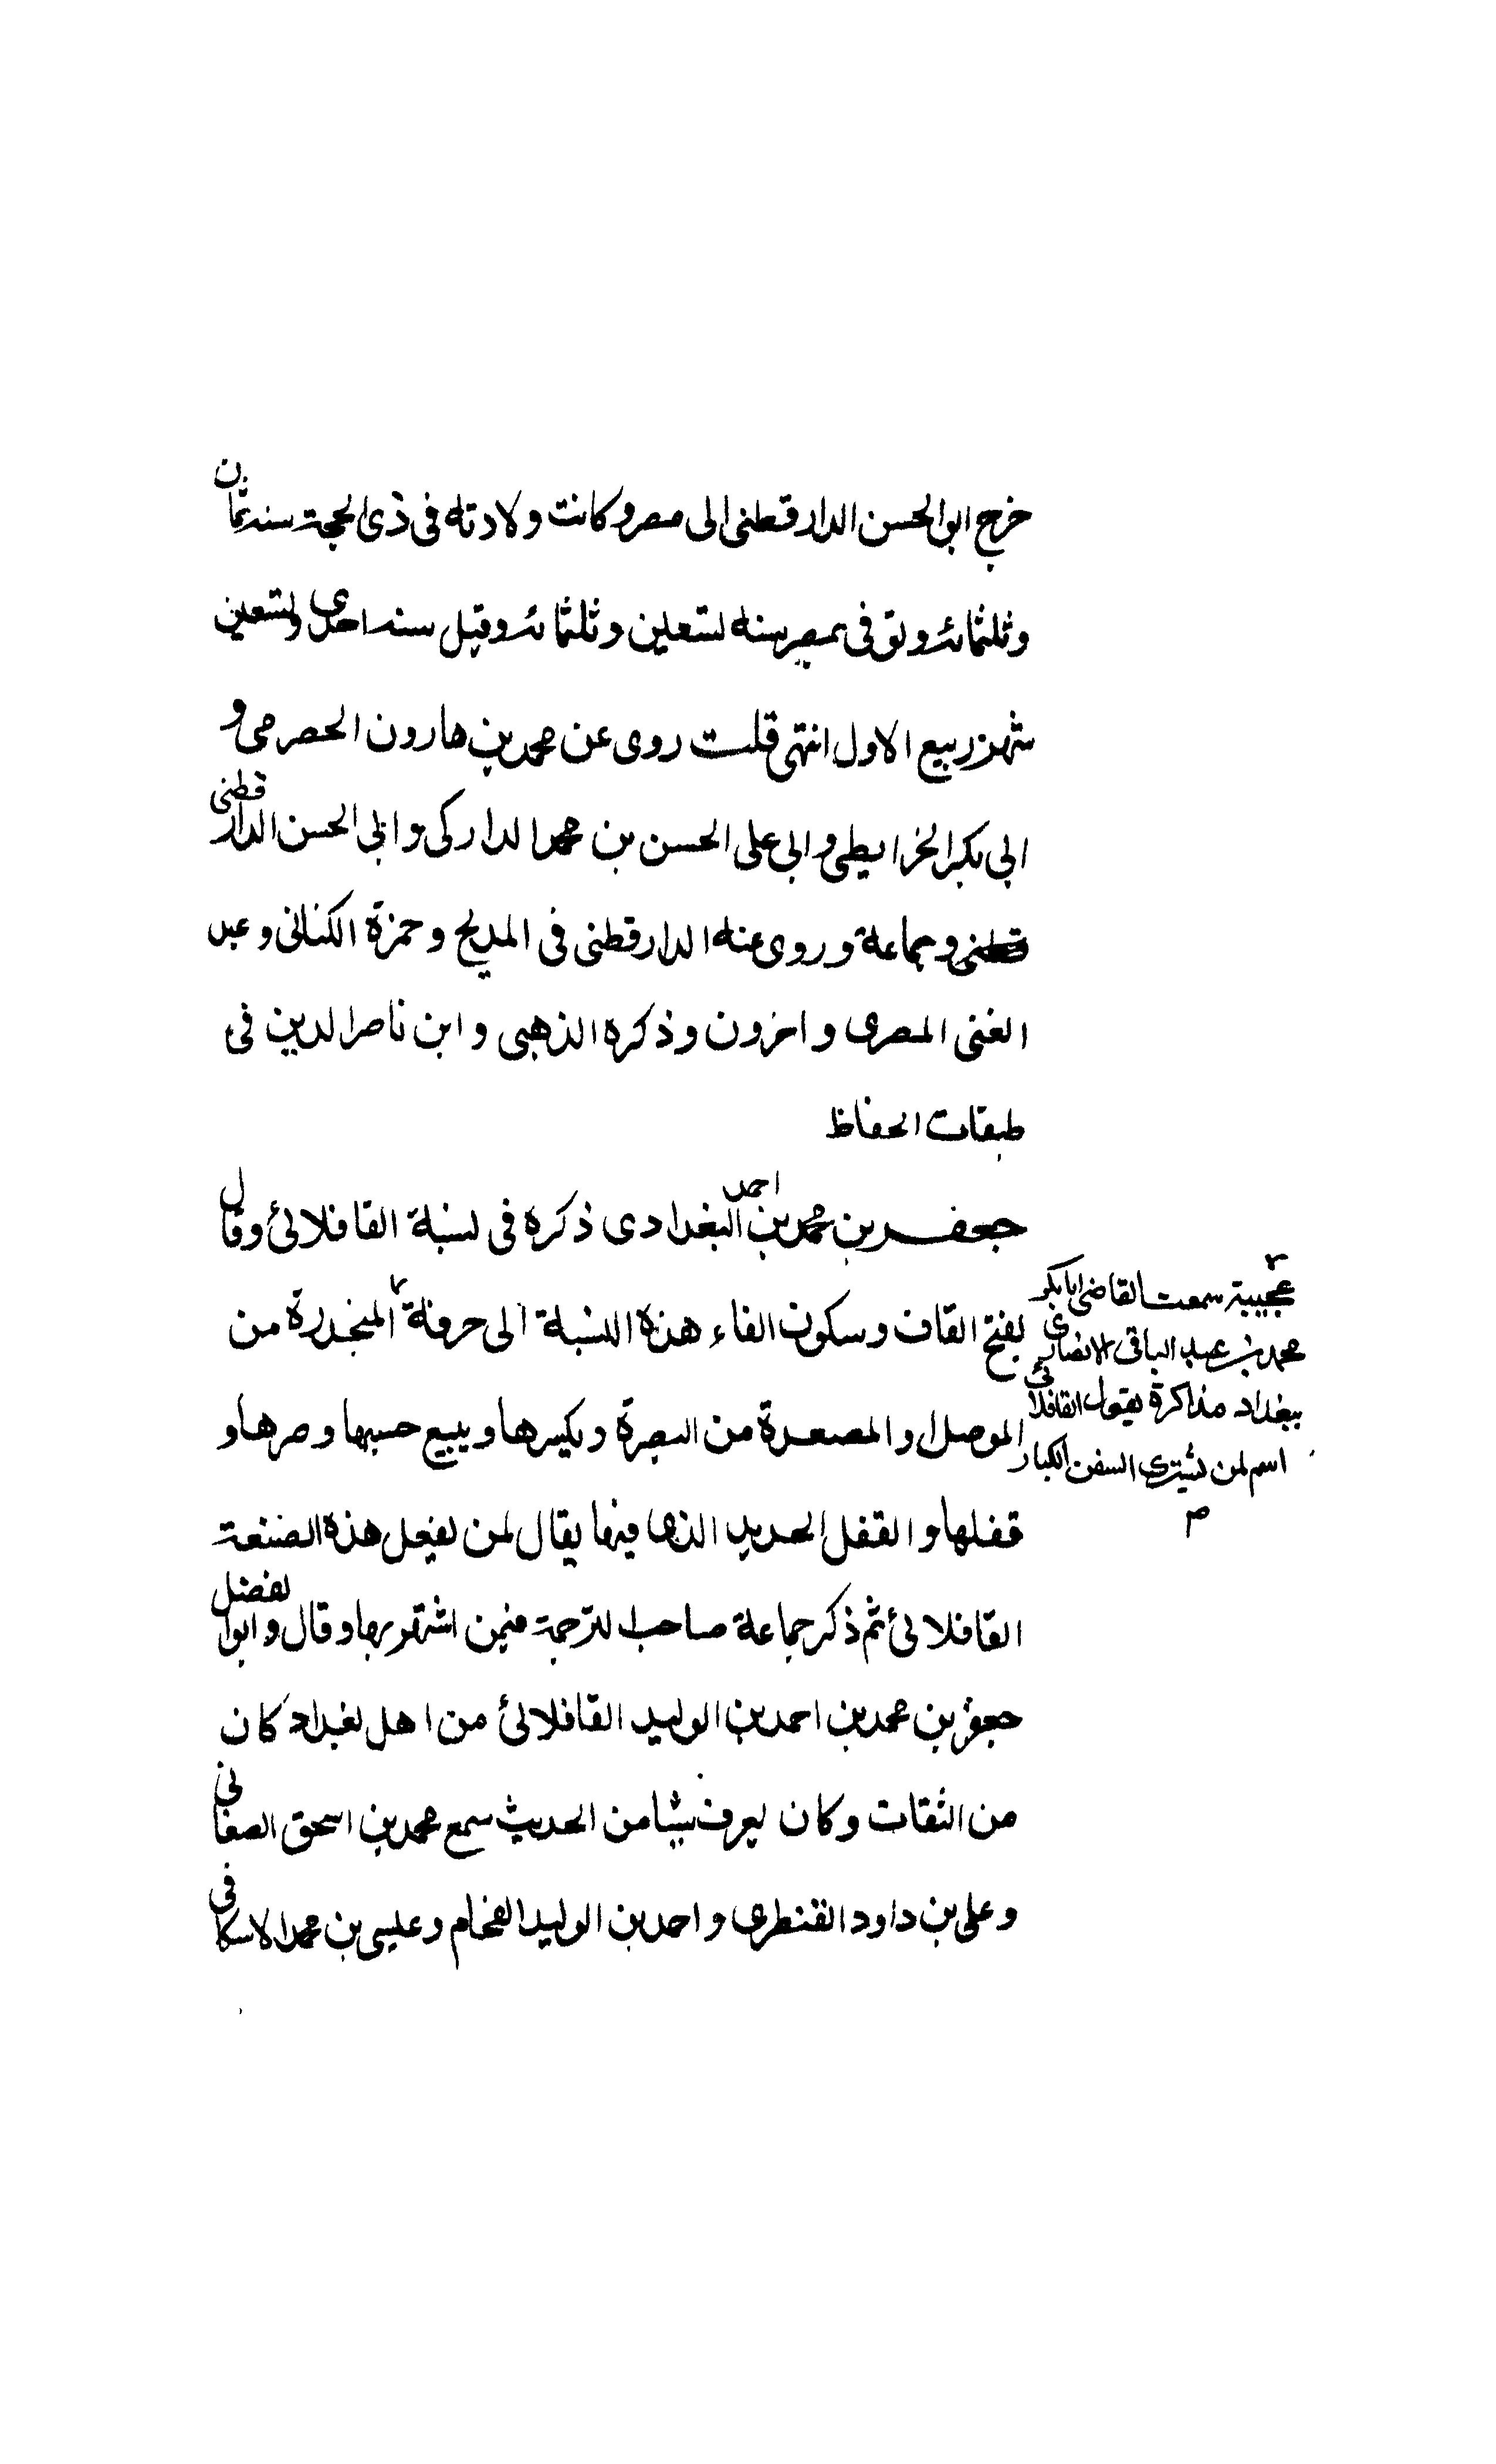 خرج ابو الحسن الدارقطنى الى مصر وكانت ولادته فى ذى الحجة سنة ثمان
وثلثمائة وتوفى بمصر سنة تسعين وثلثمائة وقيل سنة احدى وتسعين
شهر ربيع الاول انتهى قلت روى عن محمد بن هارون الحضرمى و
ابى بكر الخرايطى وابى على الحسن بن محمد الداركى وابى الحسن الدارقطنى
قطنى وجماعة وروى عنه الدارقطنى فى المديح وحمزة الكنانى وعبد
الغنى المصرى واخرون وذكره الذهبى وابن ناصر الدين فى
طبقات الحفاظ
جعفر بن محمد بن احمد البغدادى ذكره فى نسبة القافلائى وقال
بفتح القاف وسكون الفاء هذه النسبة الى حرفة المنحدرة من
الموصل والمصعدة من البصرة ويكسرها ويبيع خشبها وصرها و
قفلها والقفل الحديد الذى فيها يقال لمن يفعل هذه الصنعة
القافلائى ثم ذكر جماعة صاحب الترجمة فيمن اشتهر بها وقال وابو الفضل
جعفر بن محمد بن احمد بن الوليد القافلائى من اهل بغداد كان
من الثقات وكان يعرف شيئا من الحديث سمع محمد بن اسحق الصغانى
وعلى بن داود القنطرى واحمد بن الوليد الفحام وعيسى بن محمد الاسكافى
عجيبة سمعت القاضى ابا بكر
محمد بن عبد الباقى الانصارى
ببغداد مذاكرة يقول القافلائى
اسم لمن يشترى السفن الكبار